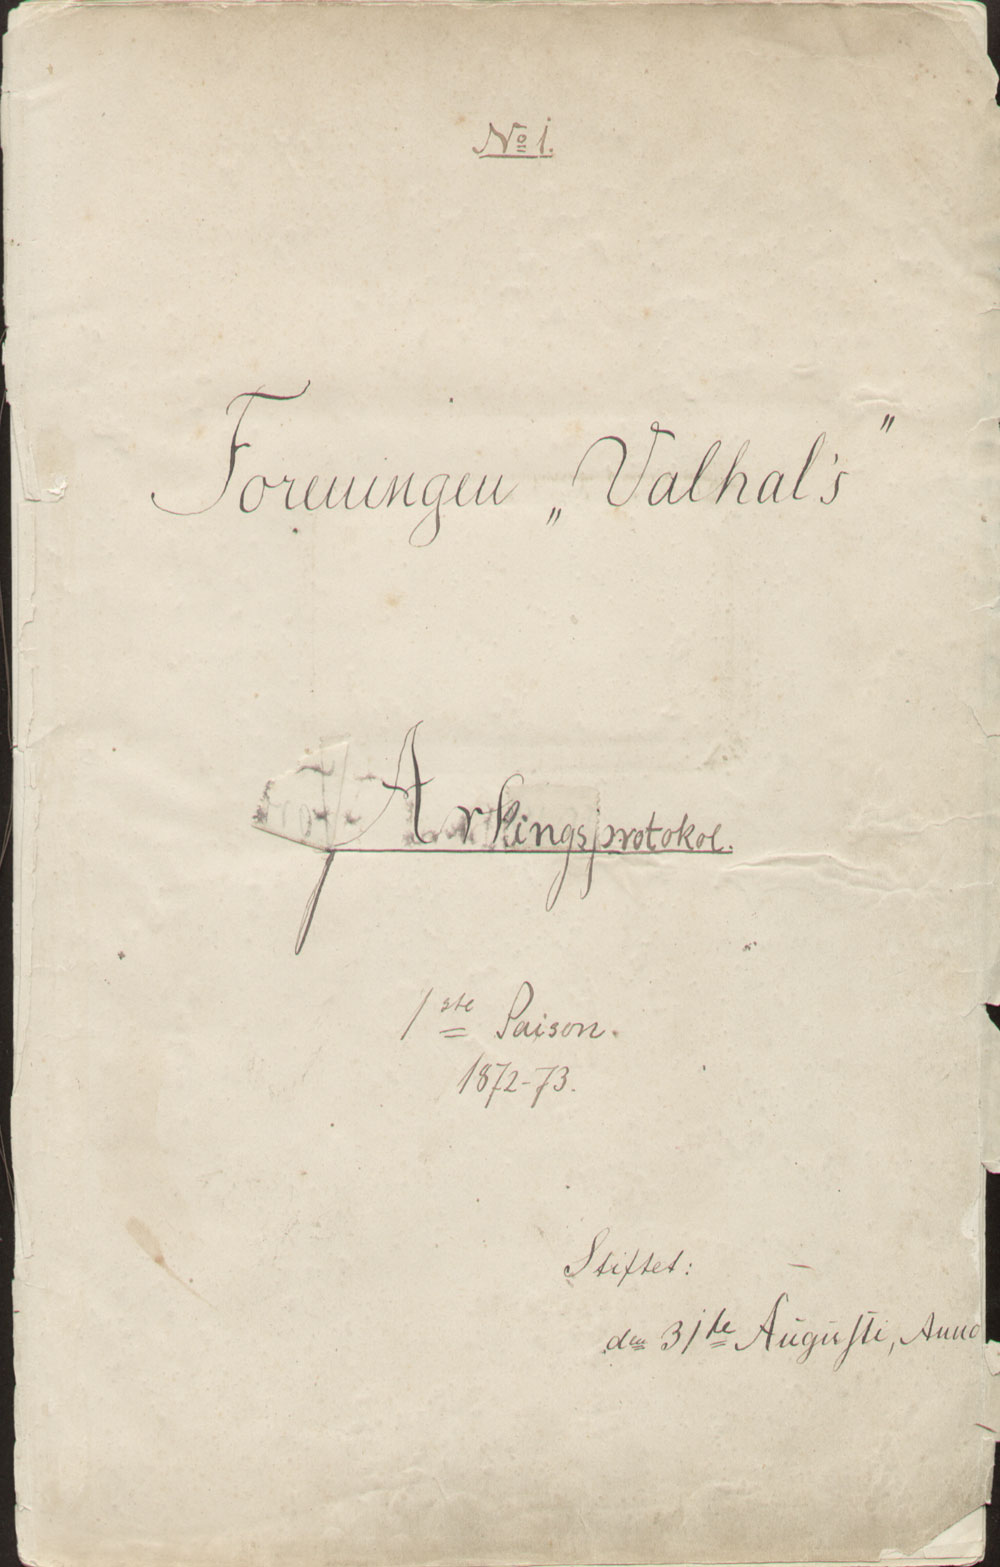 No 1.
Foreningen „Valhal's"
Arkingsprotokol.
1ste Saison.
1872-73.
Stiftet:
den 31te Augusti, Anno